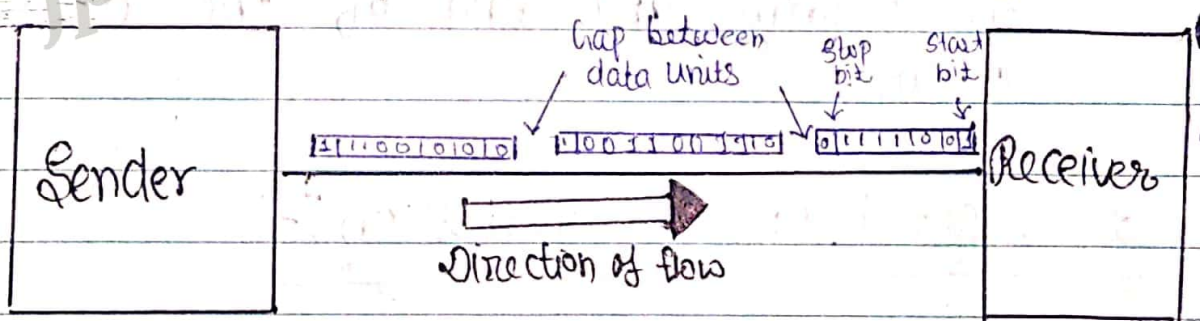 Gap between
data units
stop
bit
start
bit
Sender
1 1 1 0 0 1 0 1 0 1 0
1 1 0 0 1 1 0 0 1 1 0
0 1 1 1 1 1 0 0 1
Receiver
Direction of flow